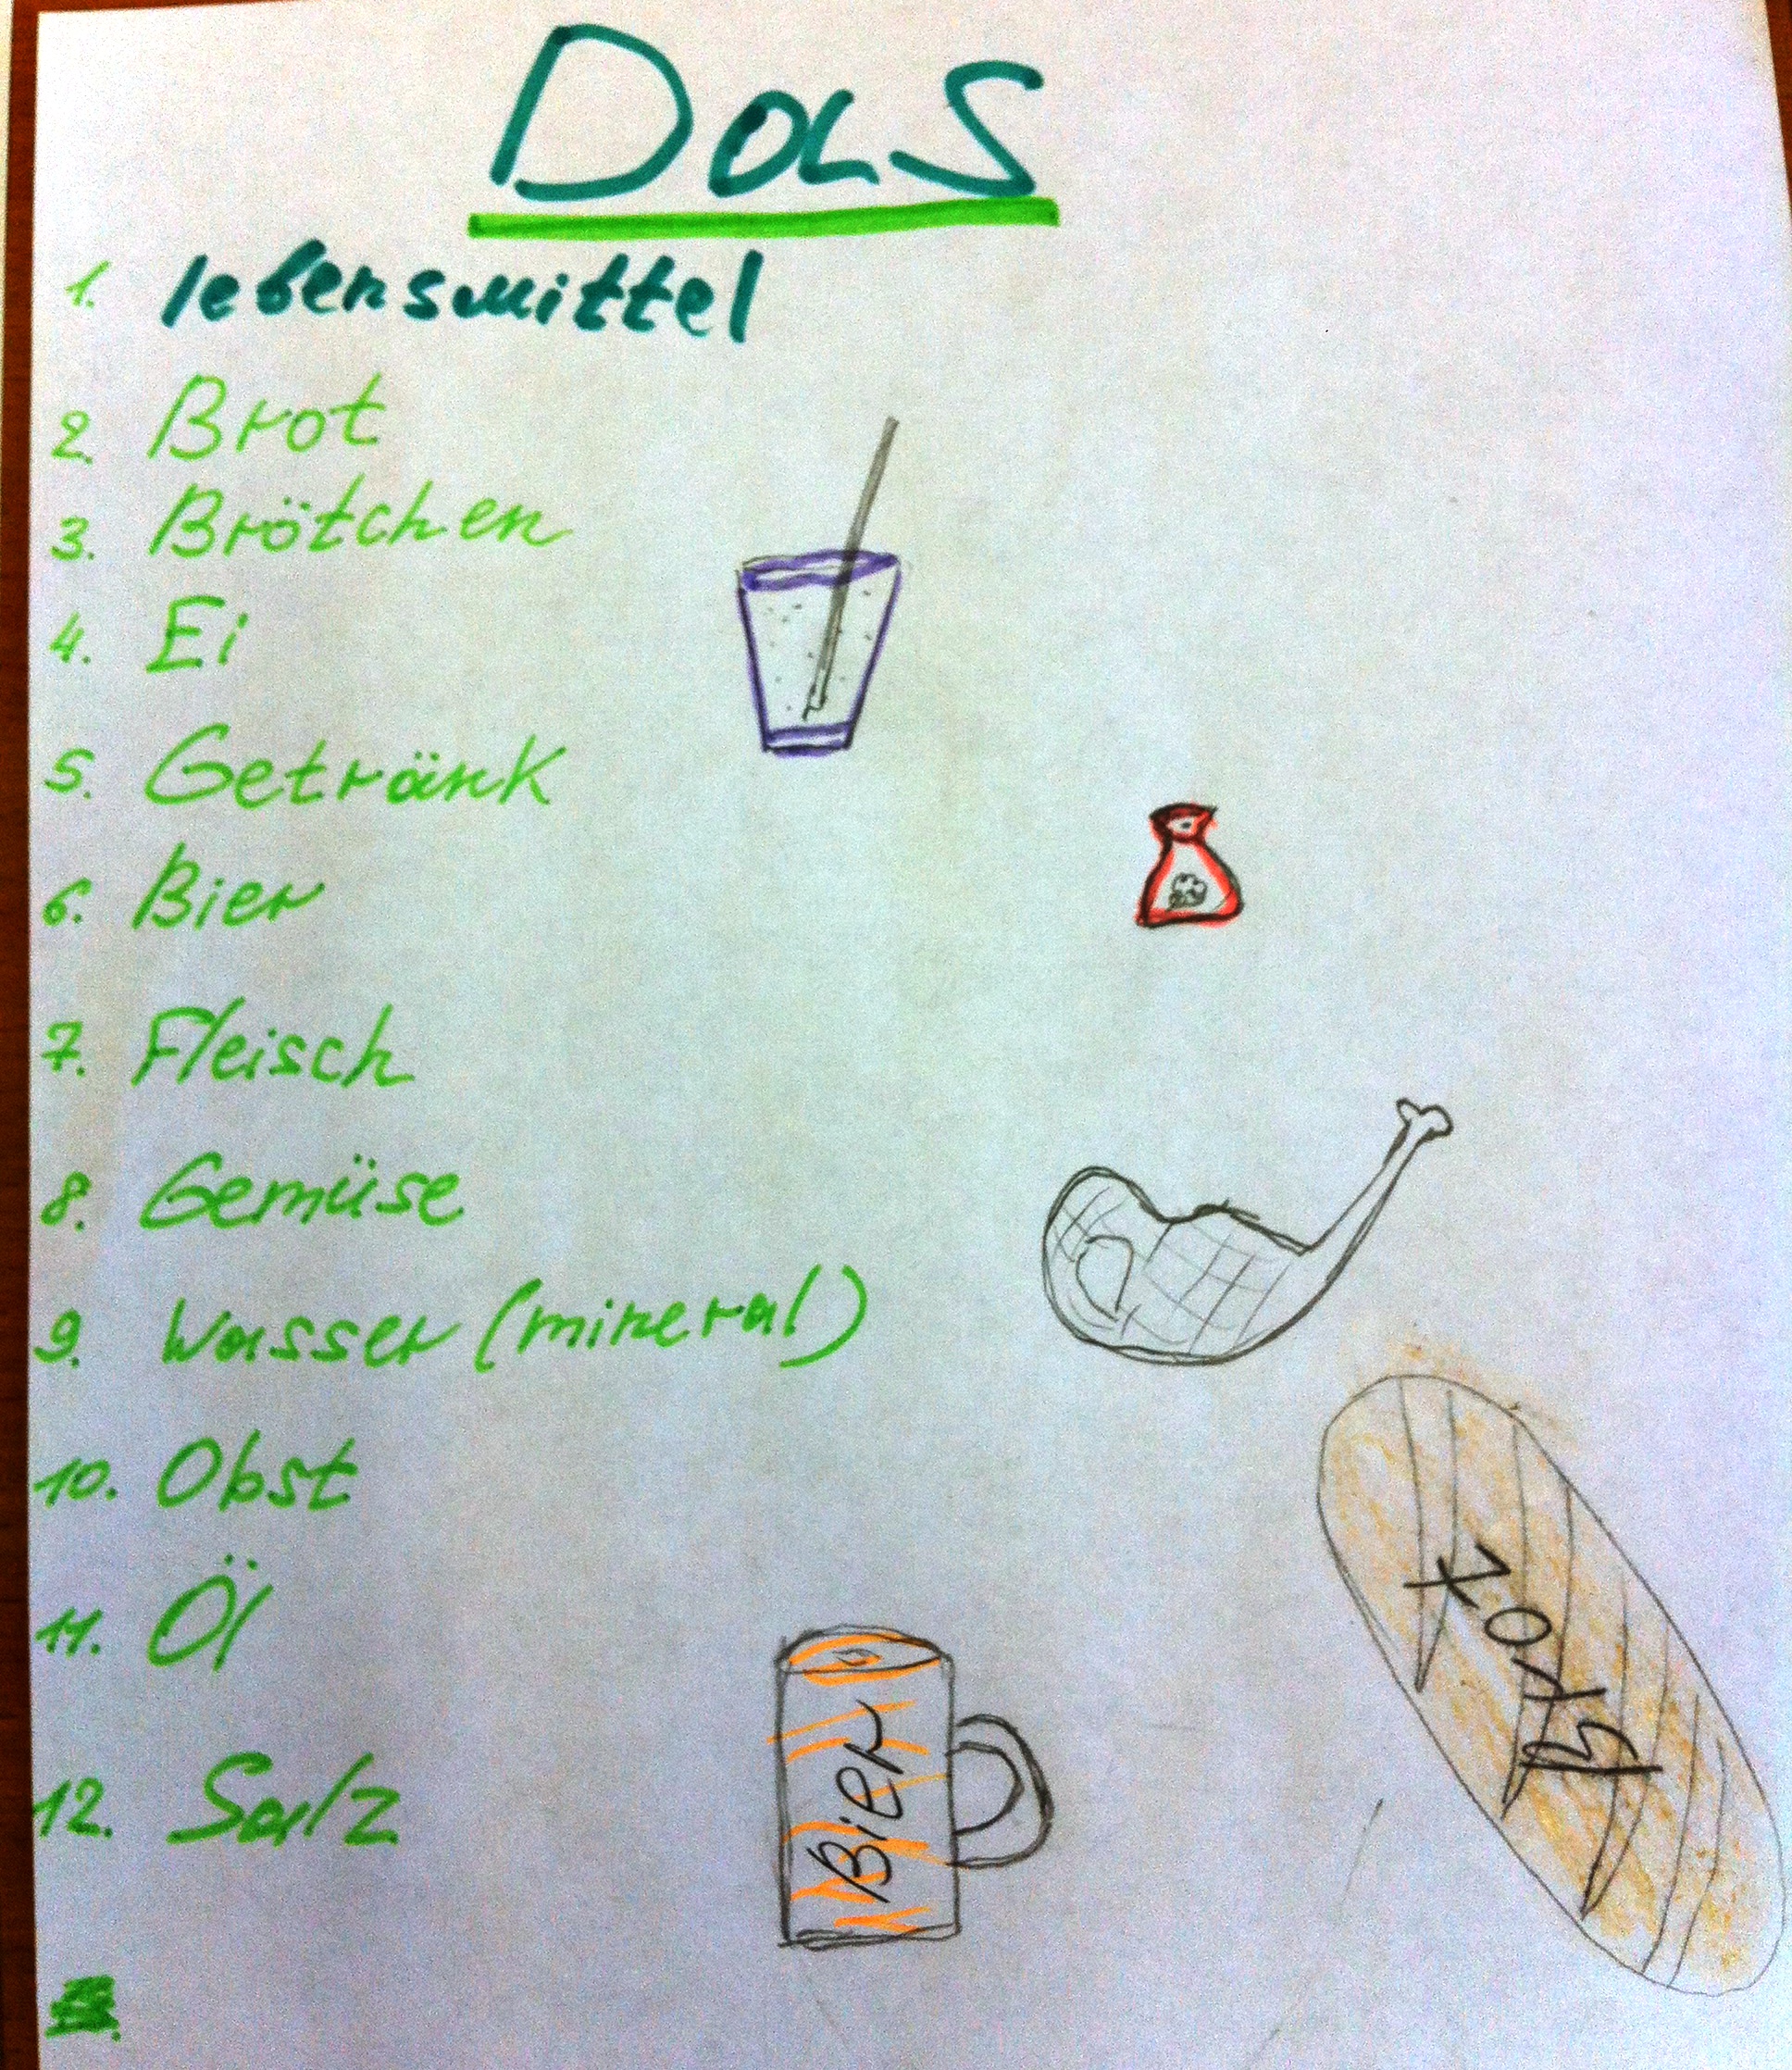 Das
1. lebensmittel
2. Brot
3. Brötchen
4. Ei
5. Getränk
6. Bier
7. Fleisch
8. Gemüse
9. Wasser (mineral)
10. Obst
11. Öl
12. Salz
Bier
Brot